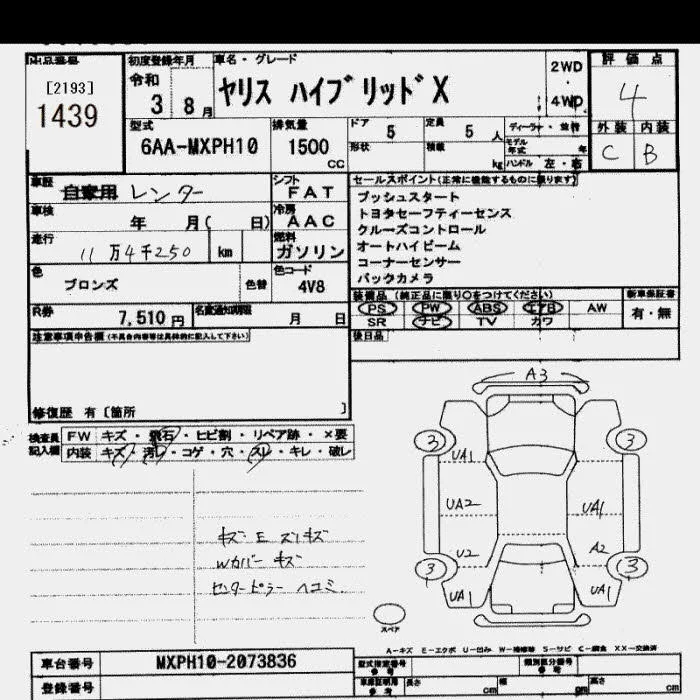 初度登録年月
車名・グレード
[2193]
1439
令和
3 8月
ヤリス ハイブリッド X
2WD
・
4WD
評価点
4
外装 内装
C B
型式
6AA-MXPH10
排気量
1500
CC
ドア 5
定員 5 人
形状
積載 kg
ディーラー・並行
モデル年式 年
ハンドル 左・右
車歴
自家用 レンター
シフト
FAT
車検
年 月( 日)
冷房
AAC
走行
11万4千250 km
燃料
ガソリン
色
ブロンズ
色替
色コード
4V8
R券
7,510円
名変通知期限
月 日
セールスポイント(正常に機能するものに限ります)
プッシュスタート
トヨタセーフティーセンス
クルーズコントロール
オートハイビーム
コーナーセンサー
バックカメラ
装備品 (純正品に限り○をつけてください)
新車保証書
PS PW ABS エアB AW
SR ナビ TV カワ
有・無
後日品
注意事項申告欄(不具合内容等は具体的に記入して下さい)
修復歴 有 [箇所 ]
検査員記入欄
FW キズ・飛石・ヒビ割・リペア跡・×要
内装 キズ・汚レ・コゲ・穴・スレ・キレ・破レ
キズ E スリキズ
Wカバー キズ
センターピラー ヘコミ
A3
3 3
UA1
UA2 UA1
U2 A2
3 3
UA1 UA1
スペア
A-キズ E-エクボ U-凹み W-補修跡 S-サビ C-腐食 XX-交換済
車台番号
MXPH10-2073836
登録番号
型式指定番号
参考
類別区分番号
参考
車庫証明用
参考
長さ cm
幅 cm
高さ cm